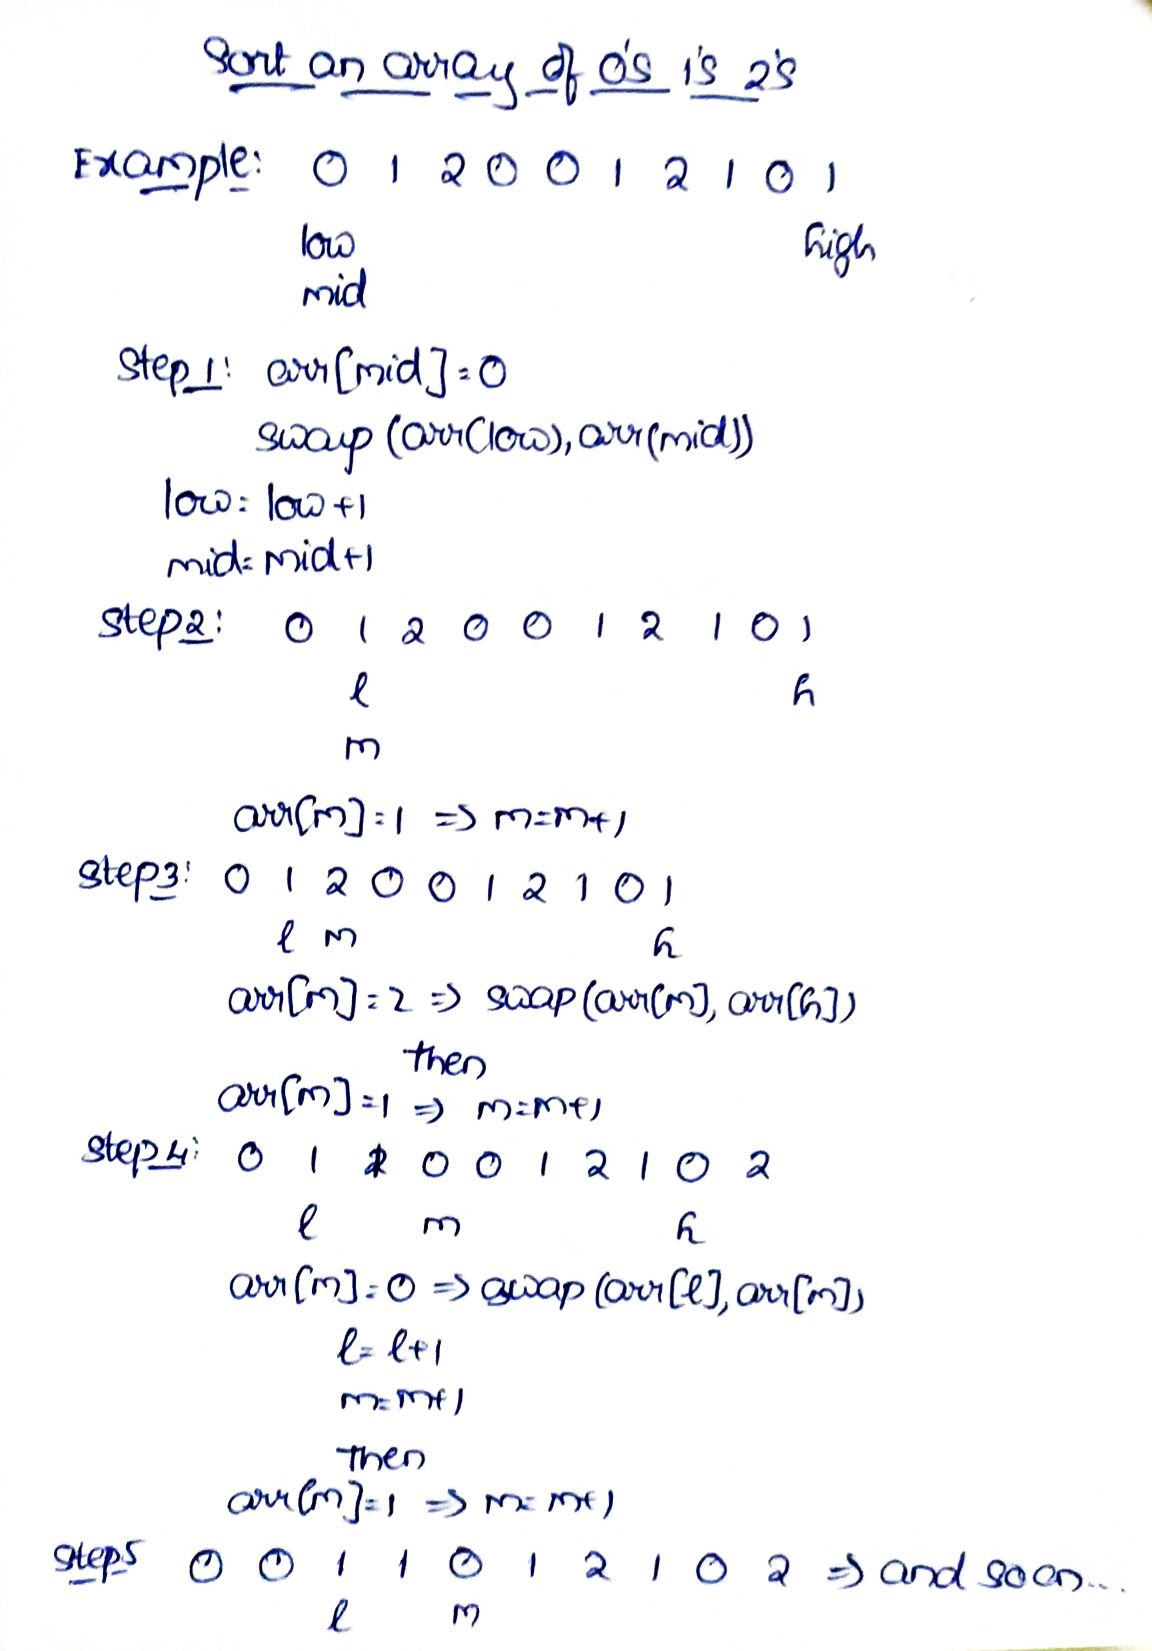 Sort an array of 0's 1's 2's
Example: 0 1 2 0 0 1 2 1 0 1
low high
mid
Step 1: arr[mid]=0
swap (arr(low), arr(mid))
low= low+1
mid= mid+1
step2: 0 1 2 0 0 1 2 1 0 1
l h
m
arr[m]=1 => m=m+1
step3: 0 1 2 0 0 1 2 1 0 1
l m h
arr[m]=2 => swap(arr[m], arr[h])
then
arr[m]=1 => m=m+1
step4: 0 1 1 0 0 1 2 1 0 2
l m h
arr[m]=0 => swap (arr[l], arr[m])
l= l+1
m=m+1
then
arr[m]=1 => m=m+1
step5 0 0 1 1 0 1 2 1 0 2 => and soon...
l m